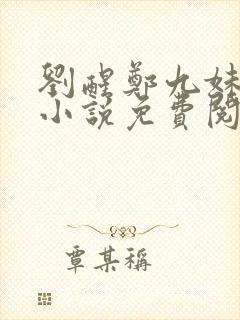 劉醒鄭九妹
小說免費閱
覃某稱